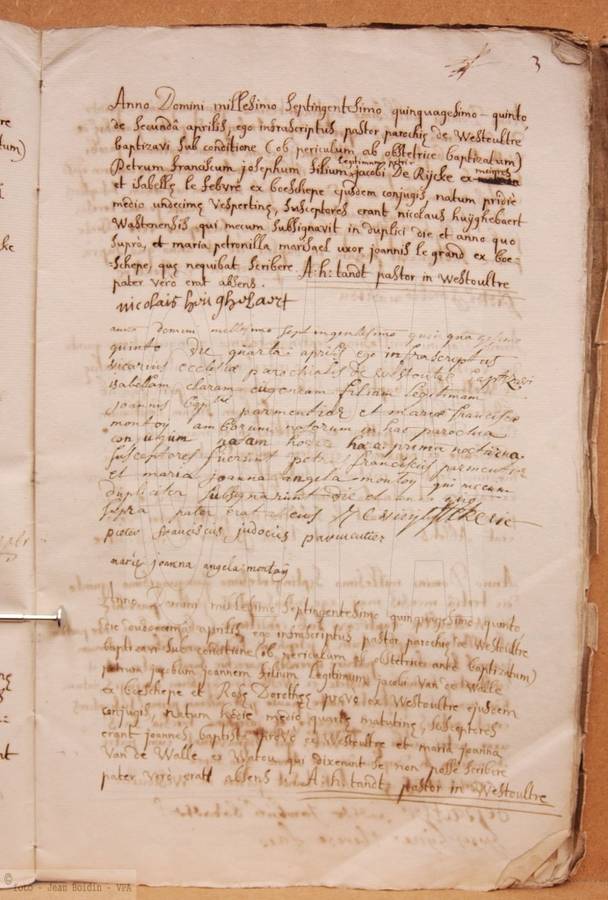 3
Anno Domini millesimo septingentesimo quinquagesimo-quinto
die secundâ aprilis, ego infrascriptus pastor parochię de Westoultre
baptizavi sub conditione (ob periculum ab obstetrice baptizatum)
legitimum
Petrum franciscum josephum filium jacobi De Rijcke ex
et isabellę le febvre ex boeschepe ejusdem conjugis, natum pridie
medio undecimę vespertinę, susceptores erant nicolaus huijghebaert
Wastonensis qui mecum subsignavit in duplici die et anno quo
supra, et maria petronilla marhael uxor joannis le grand ex boe-
-schepe, quę nequibat scribere A:h: tandt pastor in Westoultre
pater vero erat absens.
nicolais huighebaert
anno domini millesimo septingentesimo quinquagesimo
quinto die quarta aprilis ego infrascriptus
vicarius ecclesiæ parochialis de westoutre baptizavi
isabellam claram eugeneam filiam legitimam
joannis parmentier et mariæ franciscæ
montoy amborum natorum in hac parochia
conjugum natam hodie hora prima nocturna
susceptores fuerunt petrus franciscus parmentier
et maria joanna angela montoy qui mecum
dupliciter subsignarunt die et anno quo
supra pater erat
pieter franciscus judocus parmentier
marie joanna angela montoy
Anno Domini millesimo septingentesimo quinquagesimo quinto
die duodecimâ aprilis, ego infrascriptus pastor parochię de Westoultre
baptizavi sub conditione (ob periculum ab obstetrice ante baptizatum)
petrum jacobum joannem filium legitimum jacobi Van de Walle
ex boeschepe et Rosę Dorotheę prevo ex Westoultre ejusdem
conjugis, natum hodie medio quartę matutinę, susceptores
erant joannes baptista prevo ex Westoultre et maria joanna
Van de Walle ex Watou qui dixerunt se non posse scribere
pater vero erat absens A:h: tandt pastor in Westoultre
© foto - Jean Boldin - VFA